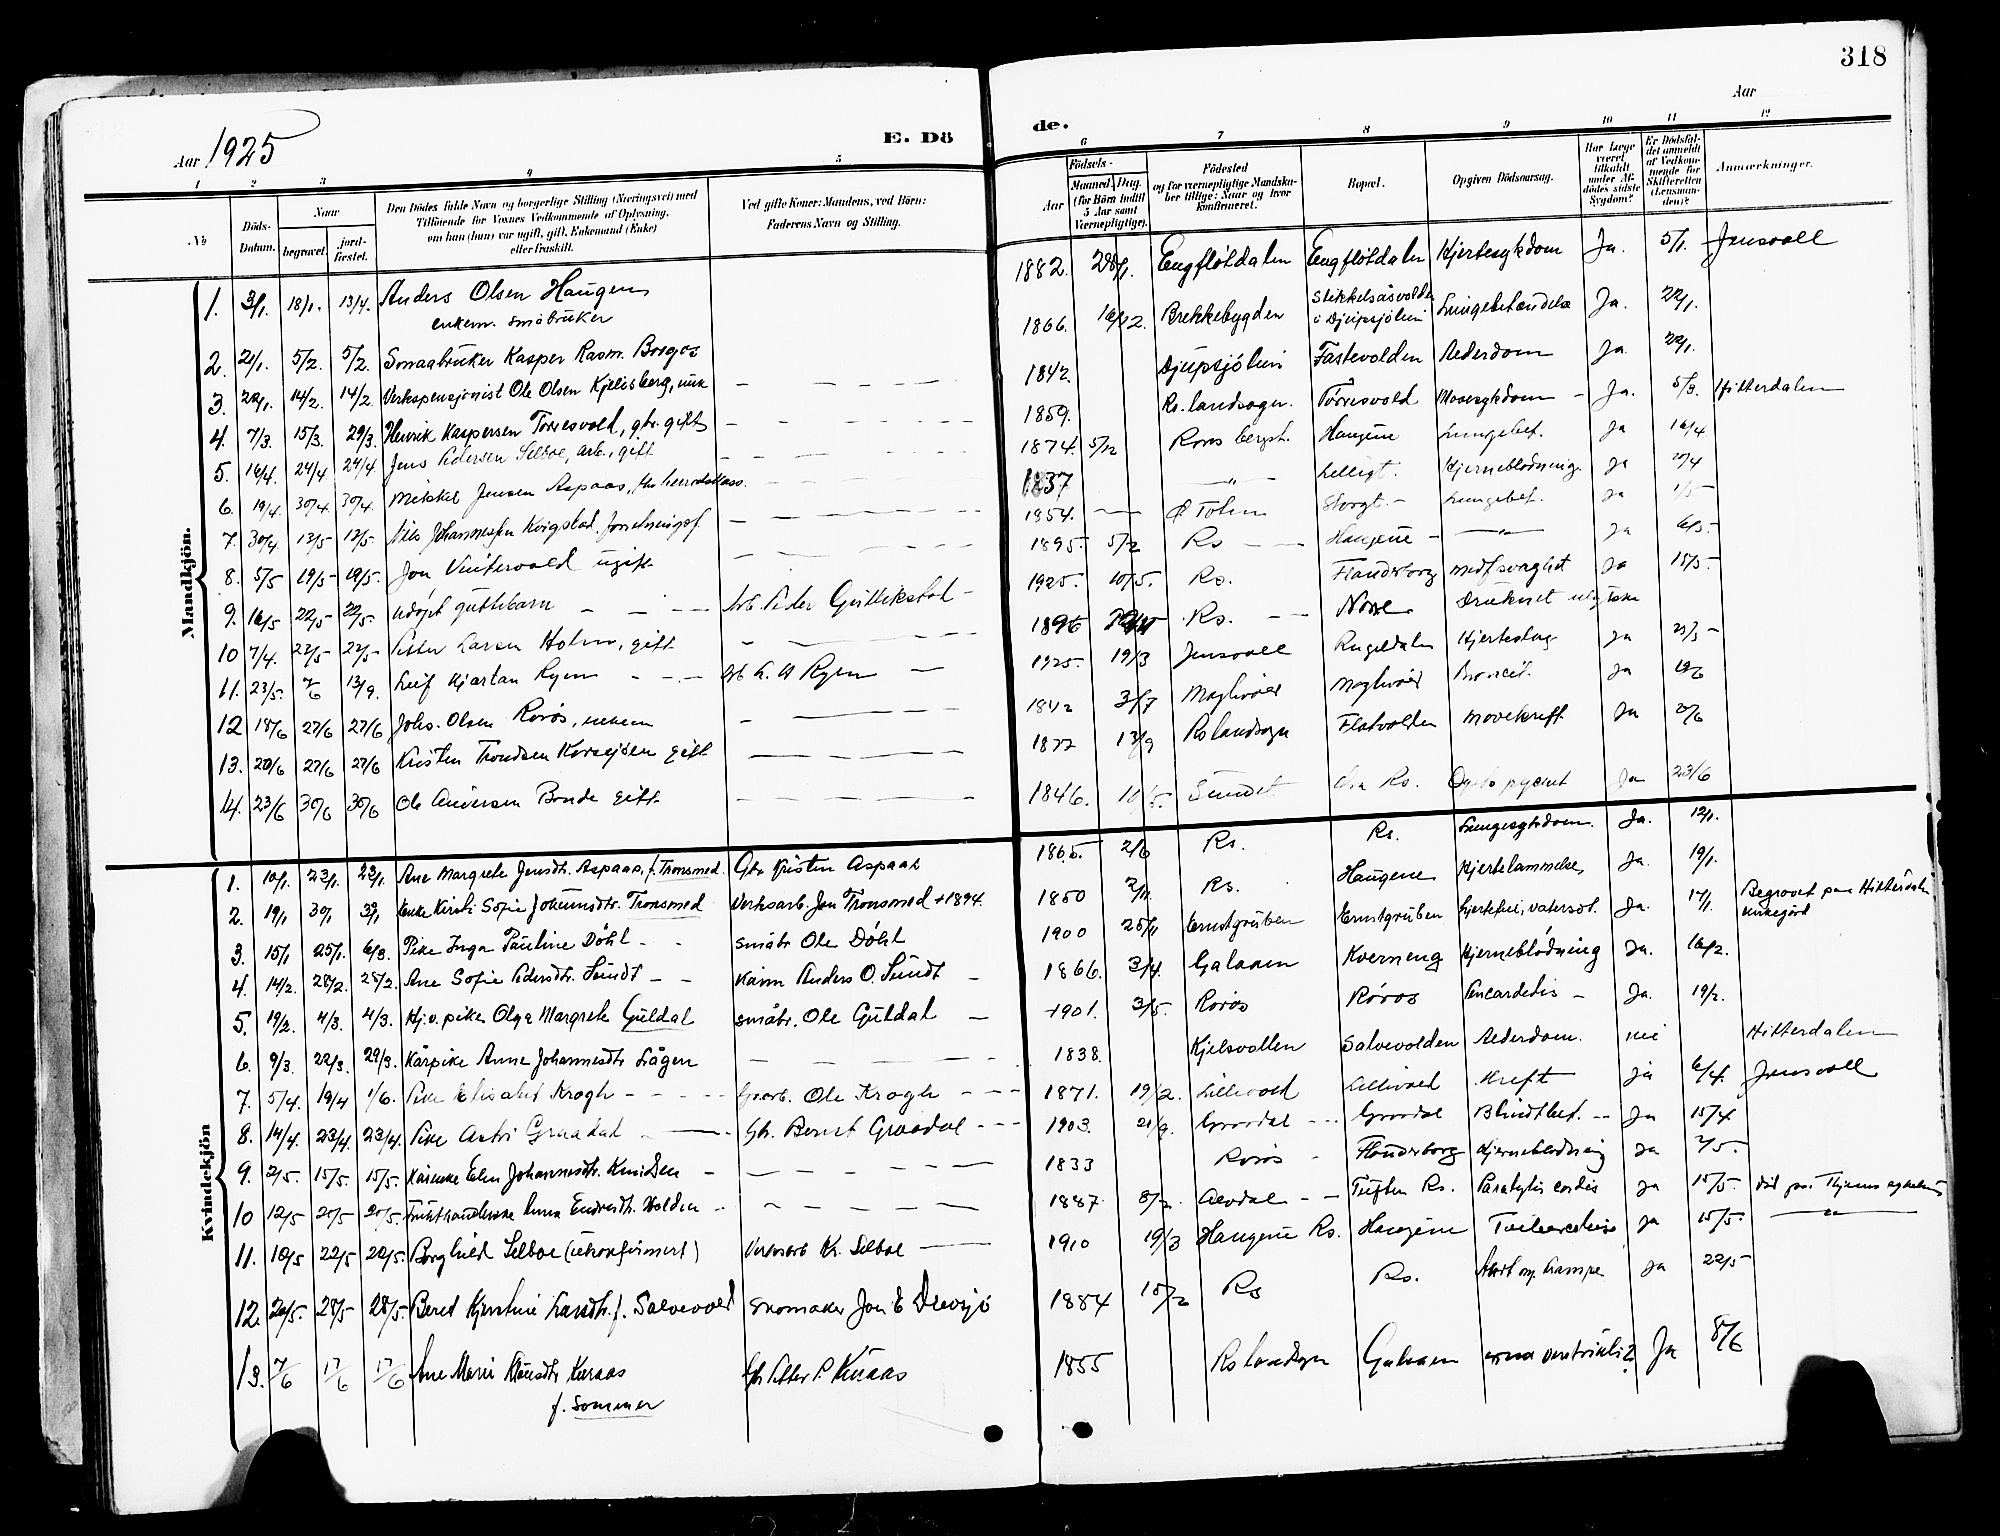 318
Aar
Aar 1925
E. Dö
de.
1 2 3 4 5
6 7 8 9 10 11 12
No
Döds-
Datum.
Naar
begravet.
jord-
fæstet.
Den Dödes fulde Navn og borgerlige Stilling (Næringsvei) med
Tilföiende for Voxnes Vedkommende af Oplysning,
om han (hun) var ugift, gift, Enkemand (Enke)
eller fraskilt.
Ved gifte Koner: Mandens, ved Börn:
Faderens Navn og Stilling.
Födsels-
Aar
Maaned. Dag.
(for Börn indtil
5 Aar samt
Værnepligtige).
Födested
og for værnepligtige Mandska-
ber tillige: Naar og hvor
konfirmeret.
Bopæl.
Opgiven Dödsaarsag.
Har Læge
været
tilkaldt
under Af-
dödes sidste
Sygdom?
Er Dödsfal-
det anmeldt
af Vedkom-
mende for
Skifteretten
(Lensman-
den)?
Anmærkninger.
Mandkjön.
1. 3/1. 18/1. 13/4. Anders Olsen Haugen 1882. 28/1. Engfløtdalen Engfløtdalen Hjertesykdom Ja. 5/1. Jensvoll
enkem. småbruker
2. 21/1. 5/2. 5/2. Smaabruker Kasper Rasm. Borgos 1866. Brekkebygden Stikkelsåsvolden i Djupsjølien Lungebetændelse Ja. 22/1.
3. 22/1. 14/2. 14/2. Verkspensjonist Ole Olsen Kjelisberg, 1842. Djupsjølien Fastevolden Alderdom Ja. 22/1.
4. 7/3. 15/3. 29/3. Henrik Kaspersen Torresvold, gbr. gift 1859. Rs. landsogn. Torresvold Mavesykdom - Ja. 5/3. Hitterdalen
5. 16/4. 24/4 24/4. Jens Pedersen Selboe, arb., gift 1874. 5/12 Røros bergst. Haugene Lungebet. Ja 16/4
6. 19/4. 30/4 30/4. Mikkel Jensen Aspaas, 1837 - " - Lilligt. Hjerneblødning Ja 20/4
7. 30/4 13/5 13/5. Nils Johannessen Kvigstad. 1854. Ø Toten Storgt. - Lungebet. Ja 1/5 -
8. 5/5 19/5 19/5. Jon Vintervold ugift 1895. 5/2 Rs Haugene - - " - Ja 6/5.
9. 16/5 22/5 22/5. udøpt guttebarn Arb. Peder Gullikstad - 1925. 10/5. Rs. Flanderborg medf. svaghet Ja 15/5.
10 7/4. 22/5 22/5- Peter Larsen Holm, gift 1896 Rs. Norge Druknet
11. 23/5. 7/6 13/9. Leif Kjartan Ryen Arb. A. Ryen 1925. 19/3 Jensvoll Rugeldalen Hjerteslag Ja 25/5 -
12 18/6 27/6 27/6 Johs. Olsen Rørøs, enkem 1842 3/7 Moglivåle Moglivåle Bronkit. Ja 19/6
13. 20/6 27/6 27/6 Kristen Trondsen Korssjøen gift 1877 13/9 Rs landsogn Flatvolden mavekreft Ja 20/6
14. 23/6 30/6 30/6 Ole Andersen Bonde gift 1846. 10/5. Sundet Rs. Ja 23/6
Kvindekjön
1. 10/1. 23/1. 23/1. Ane Margrete Jensdtr. Aspaas, f. Tronsmed. Gbr Kristen Aspaas 1865. 2/6 Rs. Rs. Lungesykdom. Ja. 12/1.
2. 19/1 30/1 30/1 Enke Kirsti Sofie Johannsdtr. Tronsmed Verksarb. Jon Tronsmed + 1894. 1850 2/11. Rs. Haugene Hjertelammelse Ja. 19/1.
3. 15/1 25/1. 6/3. Pike Inga Pauline Döhl - - småbr. Ole Döhl 1900 25/11 Ernstgruben Ernstgruben hjertefei, vatersot. Ja. 17/1. Begravet paa Hitterdalen kirkegård
4. 14/2. 28/2. 28/2. Ane Sofie Pedersdtr. Sundt - - Kårm Anders O. Sundt - 1866. 3/4. Galaaen Kverneng Hjerneblødning Ja. 16/2.
5. 19/2. 4/3. 4/3. Hj.v. pike Olga Margrete Guldal småbr. Ole Guldal - 1901. 3/5. Røros Røros Ja. 19/2.
6. 9/3. 22/3. 29/3. Kårpike Anne Johannesdtr Lågen 1838. Kjelsvollen Salvevolden Alderdom. nei Hitterdalen
7. 5/4. 19/4 1/6. Pike Elisabet Krogh - - Ole Krogh - - 1871. 19/2. Lillevold Lillevold Kreft Ja 6/4. Jensvoll
8. 14/4. 23/4. 23/4. Pike Astri Graadal Gbr. Bernt Graadal - - 1903. 21/9. Graadal - - Graadal Blindtbet. - Ja 15/4
9. 2/5. 15/5. 15/5. Kårenke Elen Johannesdtr. Knudsen - 1833 Røros - Flanderborg Hjerneblødning Ja 2/5.
10 12/5 20/5 20/5. Frukthandlerske Anna Endresdtr. Volden - 1887. 8/2. Alvdal - - Tuften Rs. Paralysis cordis Ja 15/5. død paa Tynset sykehus
11. 10/5 22/5 22/5. Borghild Selboe (ukonfirmert) Verksarb Kr. Selboe 1910 19/3 Haugene Rs. Haugene Tuberculose Ja 15/5. - " -
12. 20/5. 28/5 28/5. Beret Kjerstine Larsdtr. f. Salvevold Skomaker Jon E Drevsjø 1884 15/2 Rs Rs. Ja 22/5
13. 7/6 17/6 17/6 Ane Marie Klausdtr Kuraas Gbr Petter P. Kuraas 1855 Rs landsogn Galaaen Ja 8/6
f. Sommer